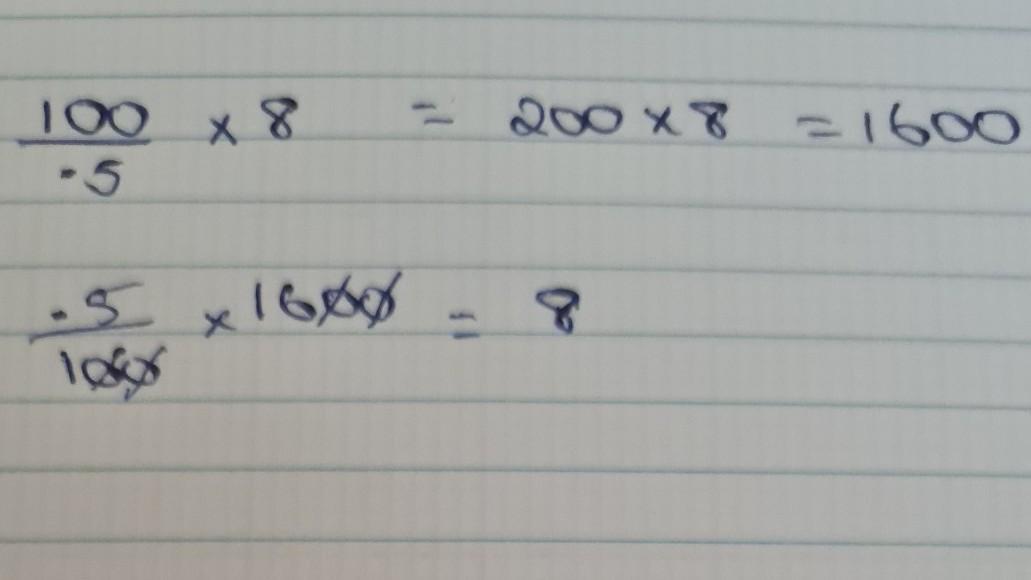 100/.5 × 8 = 200 × 8 = 1600
.5/100 × 1600 = 8